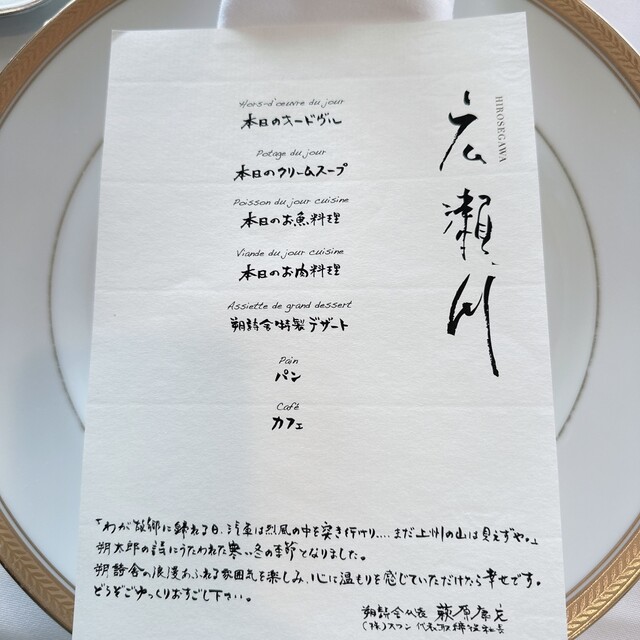 広瀬川
HIROSEGAWA
Hors-d'oeuvre du jour
本日のオードヴル
Potage du jour
本日のクリームスープ
Poisson du jour cuisine
本日のお魚料理
Viande du jour cuisine
本日のお肉料理
Assiette de grand dessert
朔詩舎特製デザート
Pain
パン
Café
カフェ
「わが故郷に帰れる日、汽車は烈風の中を突き行けり....まだ上州の山は見えずや。」
朔太郎の詩にうたわれた寒い冬の季節となりました。
朔詩舎の浪漫あふれる雰囲気を楽しみ、心に温もりを感じていただけたら幸せです。
どうぞごゆっくりおすごし下さい。
朔詩舎代表 萩原康充
(株)スワン 代表取締役社長